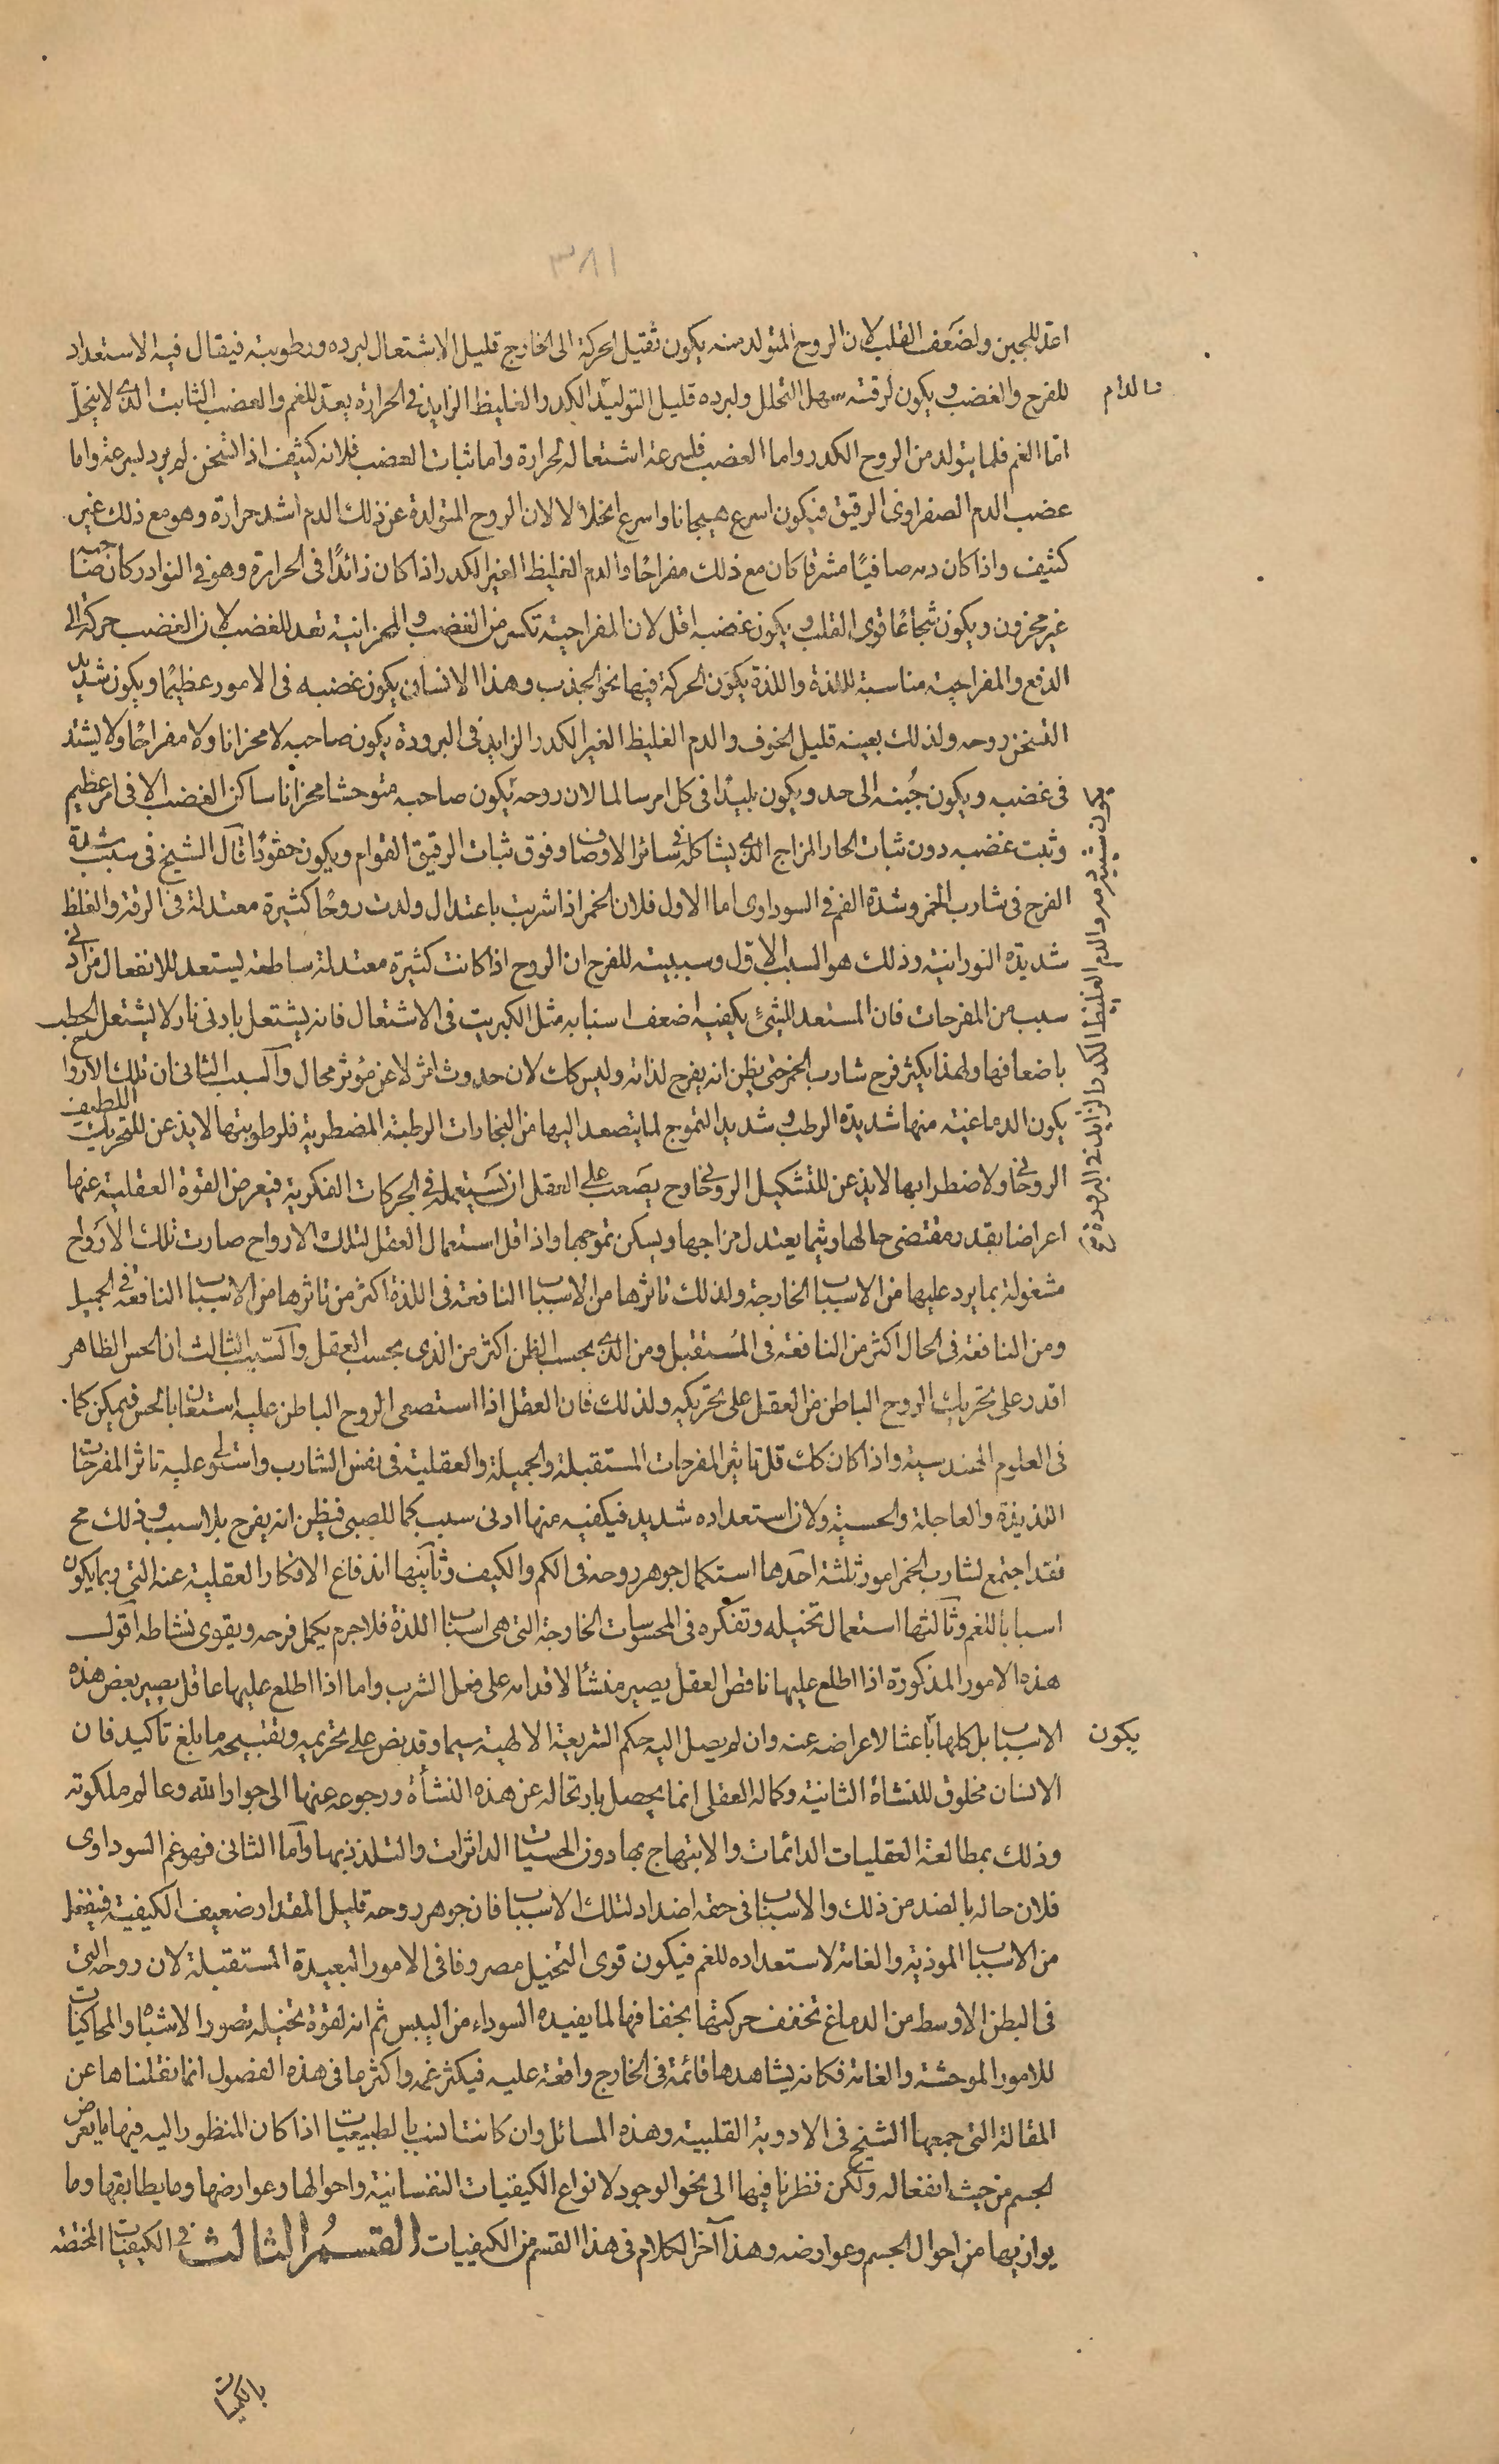 ٣٨١
اعد للجبن ولضعف القلب لان الروح المتولد منه يكون ثقيل الحركة الى الخارج قليل الاشتعال لبرده ورطوبته فيقال فيه الاستعداد
للفرح والغضب ويكون لرقته سهل التحلل ولبرده قليل التوليد الكدر والغليظ الزايد في الحرارة يعد للغم والغضب الثابت الذى لا ينحل
اما الغم فلما يتولد من الروح الكدر واما الغضب فلسرعة اشتعاله لحرارة واما ثبات الغضب فلانه كثيف اذا تسخن لم يبرد لسرعة واما
غضب الدم الصفراوى الرقيق فيكون اسرع هيجانا واسرع انحلالا لان الروح المتولدة عن ذلك الدم اشد حرارة وهو مع ذلك غير
كثيف واذا كان دمه صافيًا مشرقا كان مع ذلك مفراحًا والدم الغليظ الغير الكدر اذا كان زائدًا في الحرارة وهو في النوادر كان صاحبه
غير محزون ويكون شجاعًا قوى القلب ويكون غضبه اقل لان المفراحية تكسر من الغضب والمحزانية تعد للغضب لان الغضب حركة الى
الدفع والمفراحية مناسبة لللذة واللذة يكون الحركة فيها نحو الجذب وهذا الانسان يكون غضبه في الامور عظيمًا ويكون شديد
التسخن روحه ولذلك بعينه قليل الخوف والدم الغليظ الغير الكدر الزايد في البرودة يكون صاحبه لا محزانا ولا مفراحًا ولا يشتد
فى غضبه ويكون جُبنه الى حد ويكون بليدًا فى كل امر سالما لان روحه يكون صاحبه متوحشا محزانا ساكن الغضب الا فى امر عظيم
وثبت غضبه دون ثبات الحار المزاج الذى يشاكله فى سائر الاوصاف وفوق ثبات الرقيق القوام ويكون حقودًا قال الشيخ فى سبب شدة
الفرح فى شارب الخمر وشدة الغم فى السوداوى اما الاول فلان الخمر اذا شربت باعتدال ولدت روحًا كثيرة معتدلة فى الرقة والغلظ
شديدة النورانية وذلك هو السبب الاول وسببيته للفرح ان الروح اذا كانت كثيرة معتدلة ساطعة ليستعد للانفعال من ادنى
سبب من المفرحات فان المستعد للشئ يكفيه اضعف اسبابه مثل الكبريت فى الاشتعال فانه يشتعل بادنى نار لا يشتعل الحطب
باضعافها ولهذا يكثر فرح شارب الخمر حتى يظن انه يفرح لذاته وليس كك لان حدوث اثر لا عن مؤثر محال والسبب الثانى ان تلك الارواح
يكون الدماغية منها شديدة الرطب وشديد التموج لما يتصعد اليها من البخارات الرطبة المضطربة فلرطوبتها لا يذعن للتحريك اللطيف
الروحانى ولاضطرابها لا يذعن للتشكيل الروحانى وح يصعب على العقل ان يستعمله فى الحركات الفكرية فيعرض القوة العقلية عنها
اعراضا بقدر مقتضى حالها وريثما يعتدل مزاجها ويسكن تموجها واذا قل استعمال العقل لتلك الارواح صارت تلك الارواح
مشغولة بما يرد عليها من الاسباب الخارجة ولذلك تاثرها من الاسباب النافعة فى اللذة اكثر من تاثرها من الاسباب النافعة فى الجميل
ومن النافعة فى الحال اكثر من النافعة فى المستقبل ومن الذى بحسب الظن اكثر من الذى بحسب العقل والسبب الثالث ان الحس الظاهر
اقدر على تحريك الروح الباطن من العقل على تحريكه ولذلك فان العقل اذا استصعى الروح الباطن عليه استعان بالحس فيمكن كما
فى العلوم الهندسية واذا كان كك قل تاثير المفرحات المستقبلة والجميلة والعقلية فى نفس الشارب واستولى عليه تاثر المفرحات
اللذيذة والعاجلة والحسية ولان استعداده شديد فيكفيه منها ادنى سبب كما للصبى فيظن انه يفرح بلا سبب وذلك مح
فقد اجتمع لشارب الخمر امور ثلثة احدها استكمال جوهر روحه فى الكم والكيف وثانيها اندفاع الافكار العقلية عنه التى ربما يكون
اسبابا للغم وثالثها استعمال تخيله وتفكره فى المحسوسات الخارجة التى هى اسباب اللذة فلا جرم يكمل فرحه ويقوى نشاطه اقول
هذه الامور المذكورة اذا اطلع عليها ناقص العقل يصير منشأ لاقدامه على فعل الشرب واما اذا اطلع عليها عاقل يصير بعض هذه
الاسباب بل كلها باعثا لاعراضه عنه وان لم يصل اليه حكم الشريعة الالهية سيما وقد نص على تحريمه وتقبيحه ما بلغ تاكيد فان
الانسان مخلوق للنشاة الثانية وكماله العقلى انما يحصل بارتحاله عن هذه النشأة ورجوعه عنها الى جوار الله وعالم ملكوته
وذلك بمطالعة العقليات الدائمات والابتهاج بها دون الحسيات الداثرات والتلذذ بها واما الثانى فهو غم السوداوى
فلان حاله بالضد من ذلك والاسباب فى حقه اضداد لتلك الاسباب فان جوهر روحه قليل المقدار ضعيف الكيفية فينفعل
من الاسباب الموذية والغامة لاستعداده للغم فيكون قوى التخيل مصروفا فى الامور البعيدة المستقبلة لان روحه التى
فى البطن الاوسط من الدماغ تخفف حركتها بجفافها لما يفيده السوداء من اليبس ثم انه لقوة تخيله تصور الاشباه والمحاكيات
للامور الموحشة والغامة فكانه يشاهدها قائمة فى الخارج واقعة عليه فيكثر غمه واكثر ما فى هذه الفصول انما نقلناها عن
المقالة التى جمعها الشيخ فى الادوية القلبية وهذه المسائل وان كانت انسب بالطبيعيات اذا كان المنظور اليه فيها ما يعرض
الجسم من حيث انفعاله ولكن نظرنا فيها الى نحو الوجود لانواع الكيفيات النفسانية واحوالها وعوارضها وما يطابقها وما
يوازيها من احوال الجسم وعوارضه وهذا آخر الكلام فى هذا القسم من الكيفيات القسم الثالث فى الكيفيات المختصة
يكون
والدم الغليظ الكدر الزايد فى البرودة
بالكميات